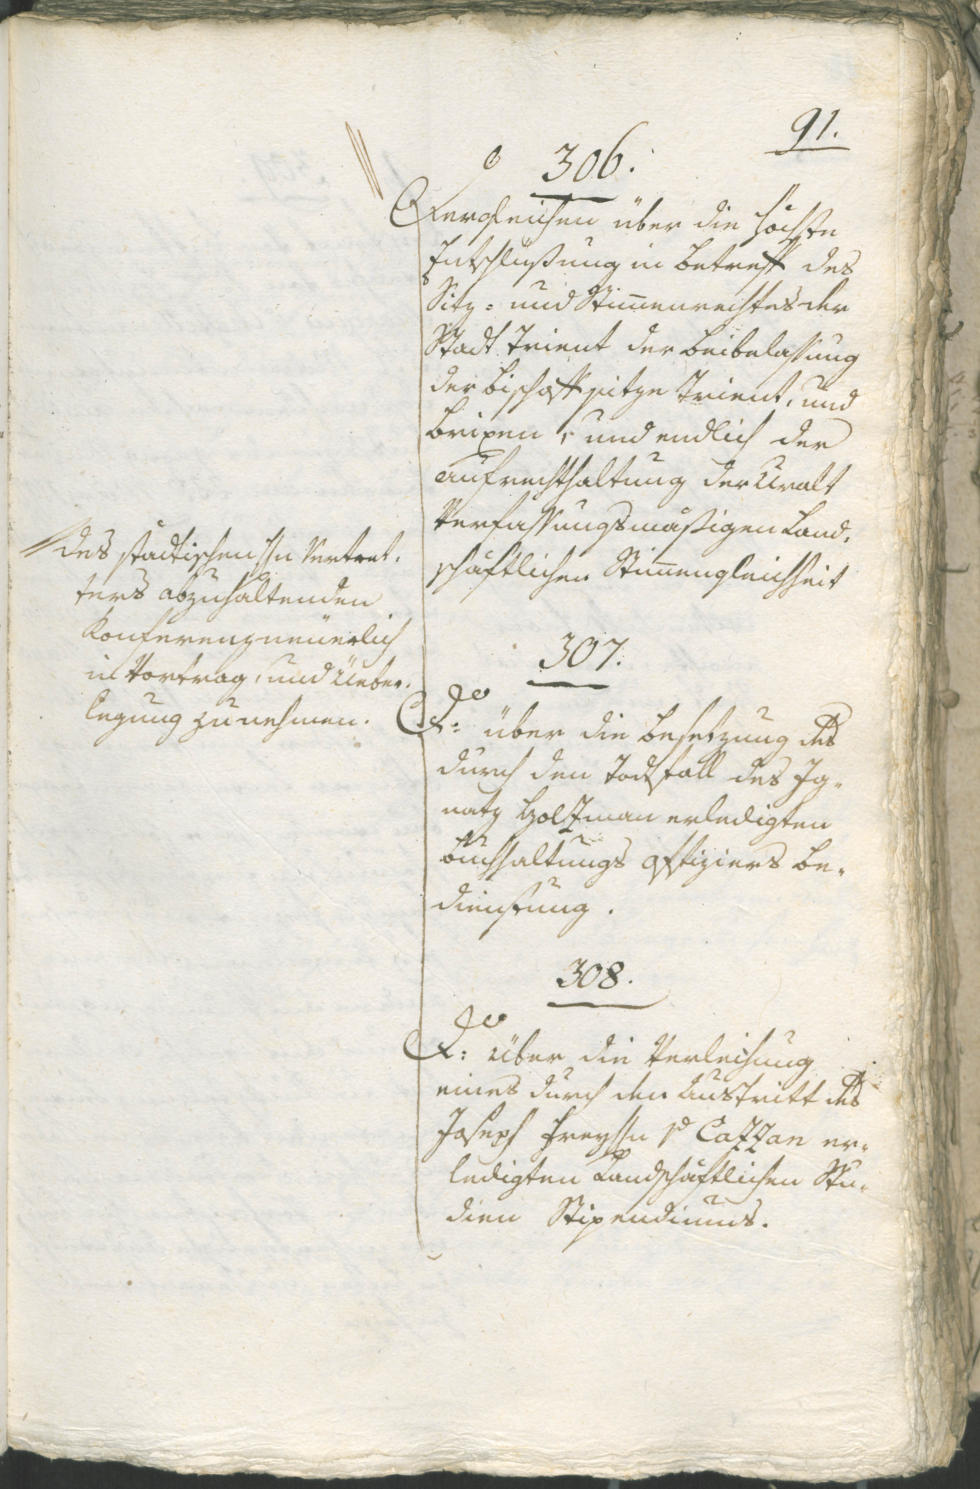 91.
306.
Dergleichen über die höchste
Entschlüßung in betreff des
Sitz- und Stimmenrechtes der
Stadt Trient der beibelaßung
der bischoffsitze Trient, und
brixen, und endlich der
aufrechthaltung der Uralt
Verfaßungsmäßigen Land-
schäftlichen Stimmengleichheit
des städtischen Hn Vertret-
ters abzuhaltenden
Konferenz neüerlich
in Vortrag, und Ueber-
legung zu nehmen.
307.
do
über die besetzung des
durch den Todfall des Ig-
natz Holzman erledigten
buchhaltungs offiziers be-
dienstung.
308.
do
über die Verleihung
eines durch den Austritt des
Joseph Freyhn v Cazzan er-
ledigten Landschäftlichen Stu-
dien Stipendiums.